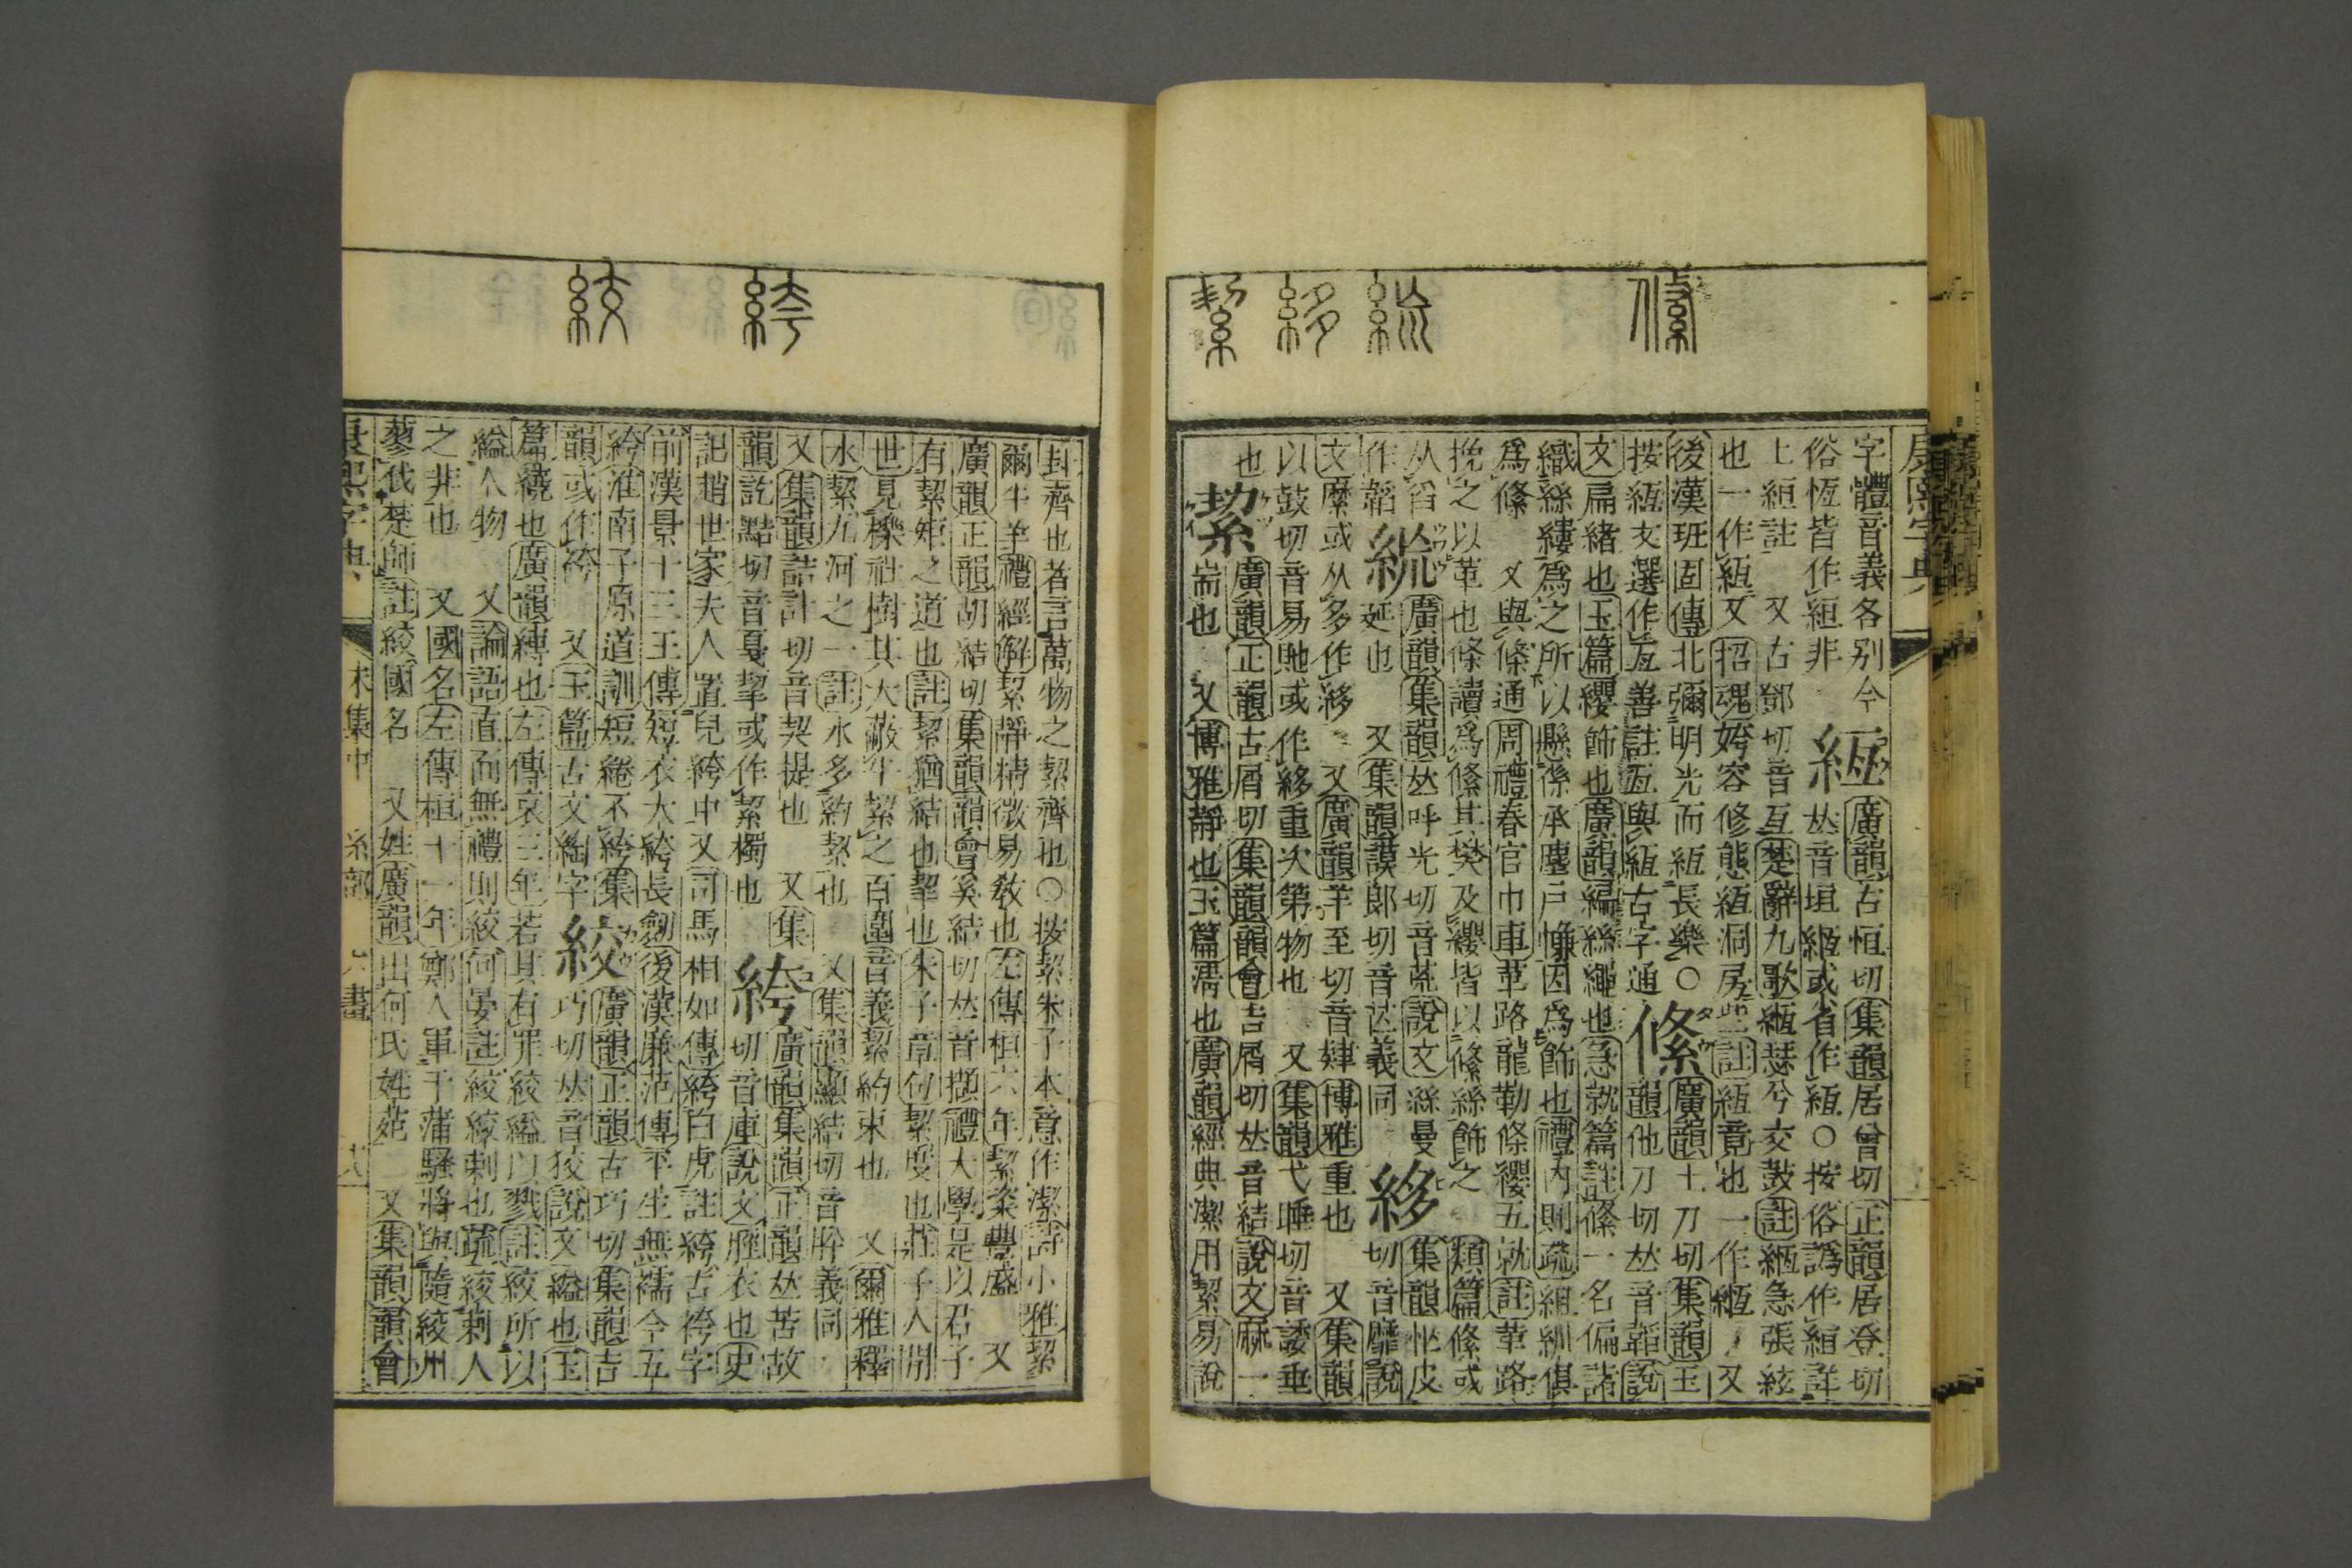 絛 䋐 䋾 絜
字體音義各别今 緪 廣韻古恒切集韻居曾切正韻居登切
俗恆皆作絙非 𠀤音垣緪或省作絚〇按俗譌作絙詳
上絙註 又古鄧切音亙楚辭九歌緪瑟兮交鼓註緪急張絃
也一作絚又招魂姱容修態絚洞房些註絚竟也一作緪 又
後漢班固傳北彌明光而絚長樂〇 絛 廣韻土刀切集韻玉
按絚文選作亙善註亙與絚古字通 韻他刀切𠀤音韜說
文扁緒也玉篇纓飾也廣韻編絲繩也急就篇註絛一名偏諸
織絲縷爲之所以懸係承塵戸㡘因爲飾也禮內則疏組紃俱
爲絛 又與條通周禮春官巾車革路龍勒條纓五就註革路
挽之以革也條讀爲絛其樊及纓皆以絛絲飾之 類篇絛或
从舀 䋐 廣韻集韻𠀤呼光切音荒說文絲曼
作韜 延也 又集韻謨郞切音茫義同 䋾 集韻忙皮
切音靡說
文縻或从多作䋾 又廣韻羊至切音肄博雅重也 又集韻
以豉切音易貤或作䋾重次第物也 又集韻弋睡切音諉垂
也 絜 廣韻正韻古屑切集韻韻會吉屑切𠀤音結說文麻一
耑也 又博雅靜也玉篇淸也廣韻經典潔用絜易說
絝 絞
卦齊也者言萬物之絜齊也〇按絜朱子本意作潔詩小雅絜
爾牛羊禮經解絜靜精微易敎也左傳桓六年絜粢豐盛 又
廣韻正韻胡結切集韻韻會奚結切𠀤音擷禮大學是以君子
有絜矩之道也註絜猶結也挈也朱子章句絜度也莊子人閒
世見櫟社樹其大蔽牛絜之百圍音義絜約束也 又爾雅釋
水絜九河之一註水多約絜也 又集韻顯結切音肸義同
又集韻詰計切音契提也 又集
韻訖黠切音戛挈或作絜獨也 絝 廣韻集韻正韻𠀤苦故
切音庫說文脛衣也史
記趙世家夫人置兒絝中又司馬相如傳絝白虎註絝古袴字
前漢景十三王傳短衣大絝長劒後漢廉范傳平生無襦今五
絝淮南子原道訓短綣不絝集
韻或作袴 又玉篇古文綯字 絞 廣韻正韻古巧切集韻吉
巧切𠀤音狡說文縊也玉
篇繞也廣韻縛也左傳哀二年若其有罪絞縊以戮註絞所以
縊人物 又論語直而無禮則絞何晏註絞絞刺也疏絞刺人
之非也 又國名左傳桓十一年鄭人軍于蒲騷將與隨絞州
蓼伐楚師註絞國名 又姓廣韻出何氏姓苑 又集韻韻會
康熙字典 未集中 糸部 六畫